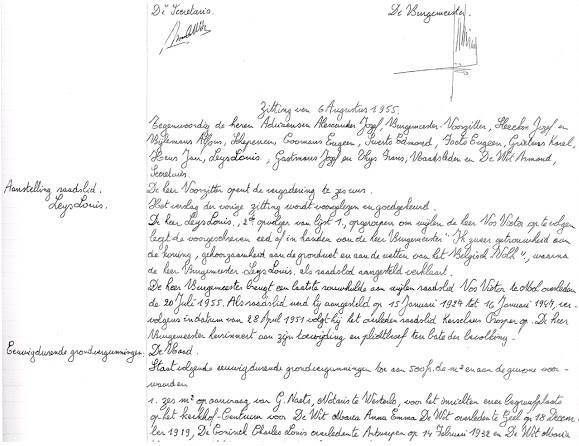 De Secretaris.
De Burgemeester.
Zitting van 6 Augustus 1955.
Tegenwoordig de heren Adriaensen Alexander Jozef, Burgemeester-Voorzitter, Heeckx Jozef en
Bylemans Alfons, Schepenen, Coomans Eugeen, Sterts Edmond, Taets Eugeen, Grietens Karel,
Heus Jan, Leys Louis, Gastmans Jozef en Thys Frans, Raadsleden en De Wit Armand,
Secretaris.
Aanstelling raadslid.
Leys Louis.
De heer Voorzitter opent de vergadering te zes uur.
Het verslag der vorige zitting wordt voorgelezen en goedgekeurd.
De heer Leys Louis, 2de opvolger van lijst 1, opgeroepen om wijlen de heer Vos Victor op te volgen
legt de voorgeschreven eed af in handen van de heer Burgemeester "Ik zweer getrouwheid aan
de koning, gehoorzaamheid aan de grondwet en aan de wetten van het Belgisch Volk", waarna
de heer Burgemeester Leys Louis, als raadslid aangesteld verklaart.
De heer Burgemeester brengt een laatste rouwhulde aan wijlen raadslid Vos Victor te Tongerlo overleden
de 20 Juli 1955. Als raadslid werd hij aangesteld op 15 Januari 1927 tot 16 Januari 1947, ver-
volgens in datum van 28 April 1951 volgt hij het overleden raadslid Kerselaers Prosper op. De heer
Burgemeester herinnert aan zijn toewijding en plichtbesef ten bate der bevolking.
Eeuwigdurende grondvergunningen.
De Raad.
Staat volgende eeuwigdurende grondvergunningen toe aan 500 fr. de m² en aan de gewone voor-
waarden
1. zes m² op aanvraag van G. Naets, Notaris te Westerlo, voor het inrichten ener begraafplaats
op het kerkhof-Centrum voor De Wit Maria Anna Emma De Wit overleden te Geel op 18 Decem-
ber 1919, De Coninck Charles Louis overleden te Antwerpen op 14 Februari 1932 en De Wit Maria